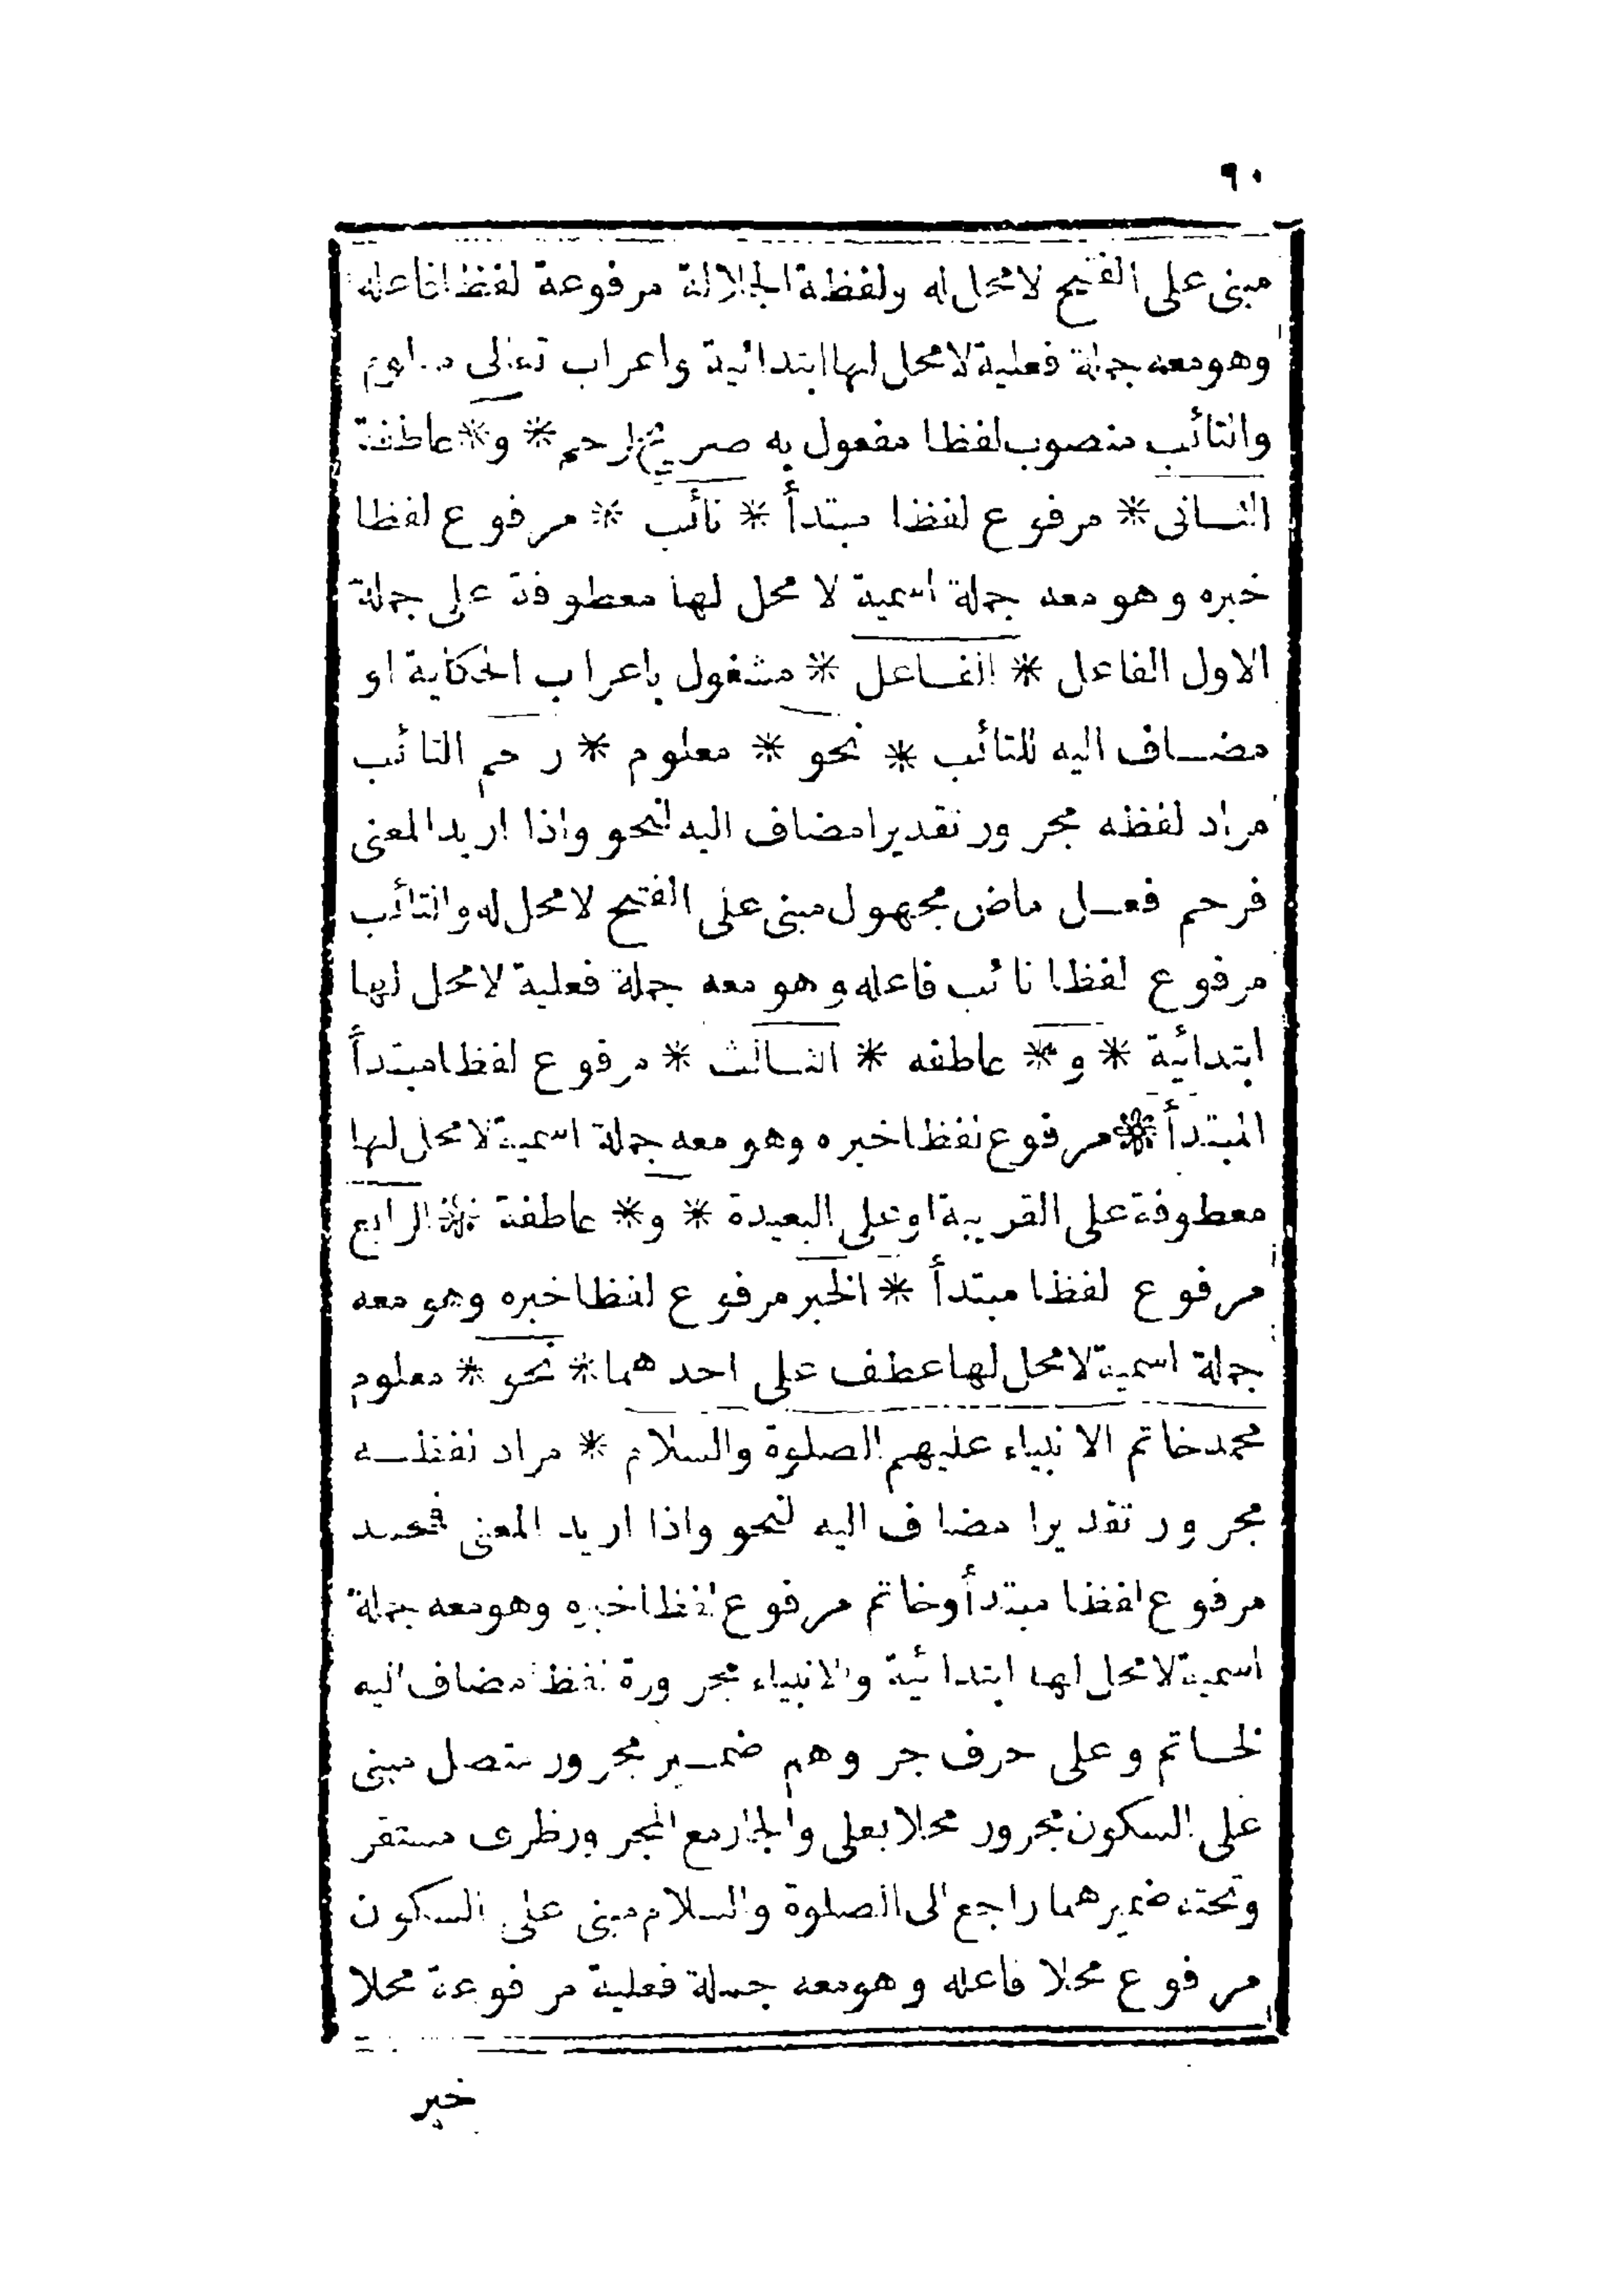 ٩٠
مبنى على الفتح لا محل له ولفظة الجلالة مرفوعة لفظا فاعله
وهو معه جملة فعلية لا محل لها ابتدائية واعراب تعالى معلوم
والتائب منصوب لفظا مفعول به صريح لرحم * و * عاطفة
الثانى * مرفوع لفظا مبتدأ * نائب * مرفوع لفظا
خبره وهو معه جملة اسمية لا محل لها معطوفة على جملة
الاول الفاعل * الفاعل * مشغول باعراب الحكاية او
مضاف اليه للنائب * نحو * معلوم * رحم التائب
مراد لفظه مجرور تقديرا مضاف اليه لنحو واذا اريد المعنى
فرحم فعل ماض مجهول مبنى على الفتح لا محل له والتائب
مرفوع لفظا نائب فاعله وهو معه جملة فعلية لا محل لها
ابتدائية * و * عاطفه * الثالث * مرفوع لفظا مبتدأ
المبتدأ * مرفوع لفظا خبره وهو معه جملة اسمية لا محل لها
معطوفة على القريبة او على البعيدة * و * عاطفة * الرابع
مرفوع لفظا مبتدأ * الخبر مرفوع لفظا خبره وهو معه
جملة اسمية لا محل لها عطف على احدهما * نحو * معلوم
محمد خاتم الانبياء عليهم الصلوة والسلام * مراد لفظه
مجرور تقديرا مضاف اليه لنحو واذا اريد المعنى فمحمد
مرفوع لفظا مبتدأ وخاتم مرفوع لفظا خبره وهو معه جملة
اسمية لا محل لها ابتدائية والانبياء مجرورة لفظا مضاف اليه
لخاتم وعلى حرف جر وهم ضمير مجرور متصل مبنى
على السكون مجرور محلا بعلى والجار مع المجرور ظرف مستقر
وتحته ضمير هما راجع الى الصلوة والسلام مبنى على السكون
مرفوع محلا فاعله وهو معه جملة فعلية مرفوعة محلا
خبر